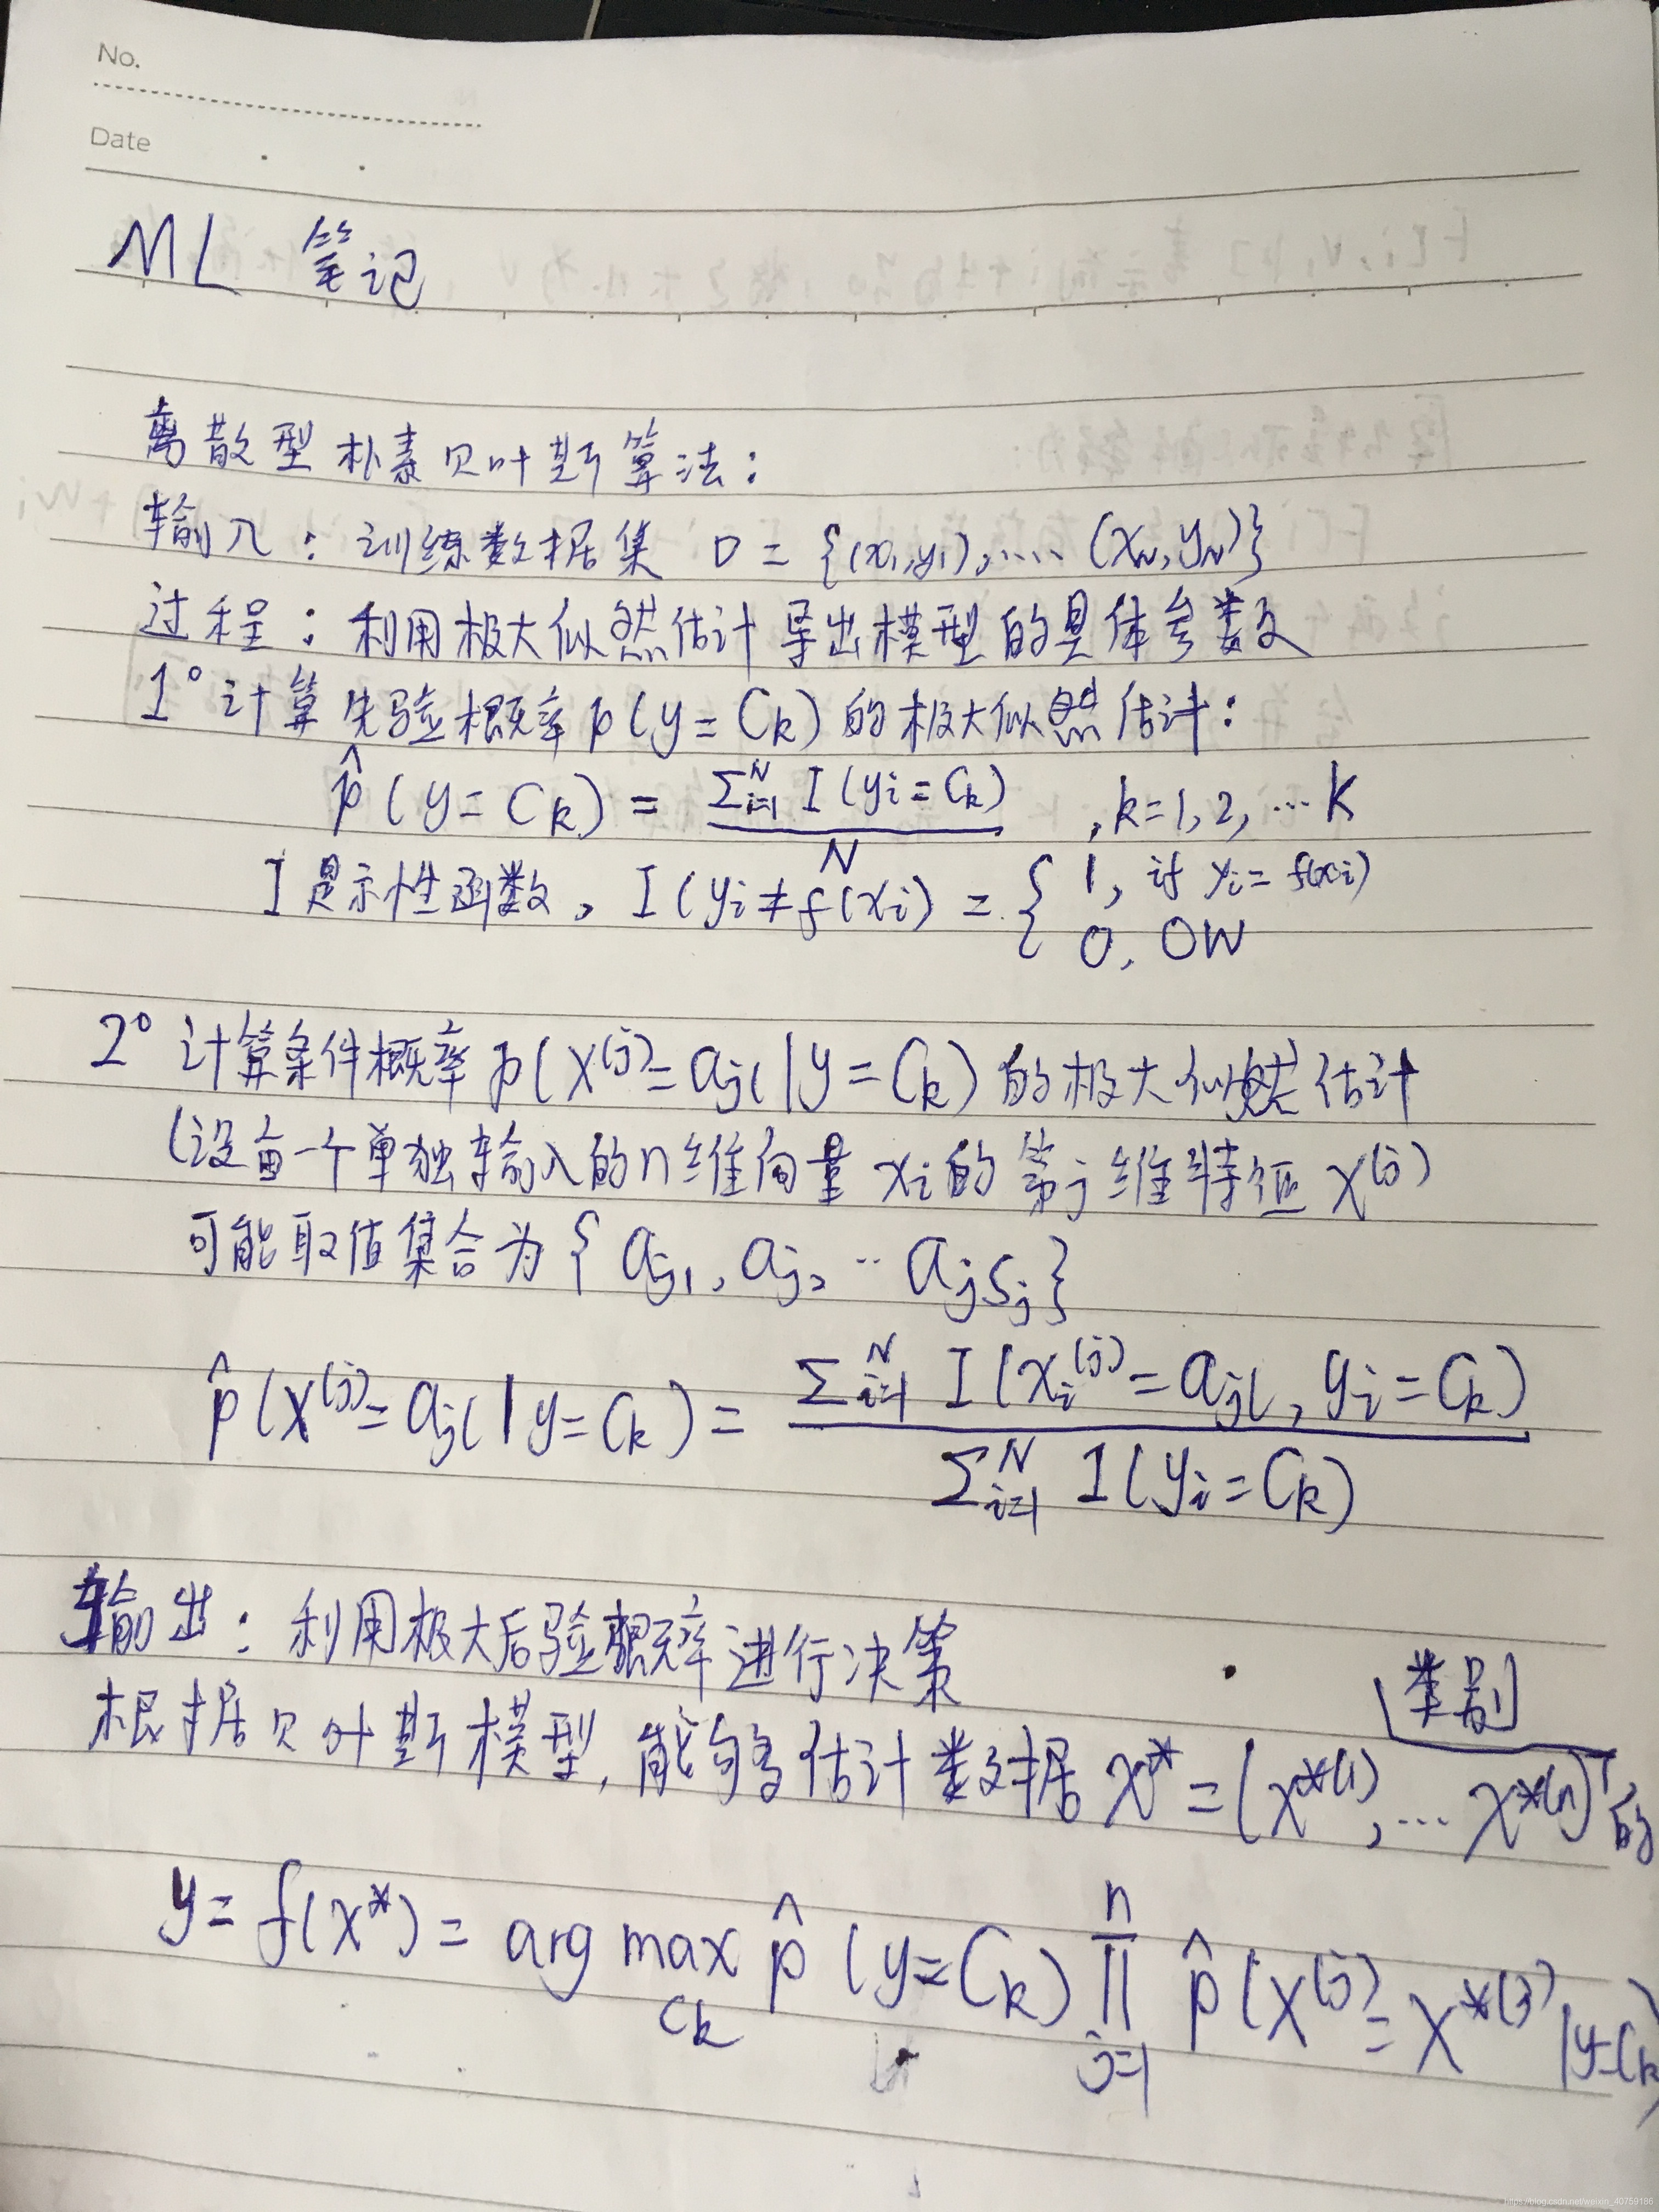 No.
Date
ML 笔记
离散型朴素贝叶斯算法：
输入：训练数据集 D = {(x₁,y₁),.... (x_N,y_N)}
过程：利用极大似然估计导出模型的具体参数
1° 计算先验概率 p(y=C_k) 的极大似然估计：
p̂(y=C_k) = Σ_{i=1}^N I(y_i=C_k) / N , k=1,2,…K
I 是示性函数, I(y_i≠f(x_i)) = { 1, if y_i=f(x_i)
0, OW
2° 计算条件概率 p(X^(j)=a_jl|y=C_k) 的极大似然估计
(设每一个单独输入的n维向量 x_i 的第j维特征 X^(j)
可能取值集合为 {a_j1, a_j2 ·· a_jS_j}
p̂(X^(j)=a_jl|y=C_k) = Σ_{i=1}^N I(x_i^(j)=a_jl, y_i=C_k) / Σ_{i=1}^N I(y_i=C_k)
输出：利用极大后验概率进行决策
根据贝叶斯模型, 能够估计数据 x* = (x*^(1), … x*^(n))^T 的类别
y = f(x*) = arg max_{C_k} p̂(y=C_k) ∏_{j=1}^n p̂(X^(j)=X*^(j)|y=C_k)
https://blog.csdn.net/weixin_40759186